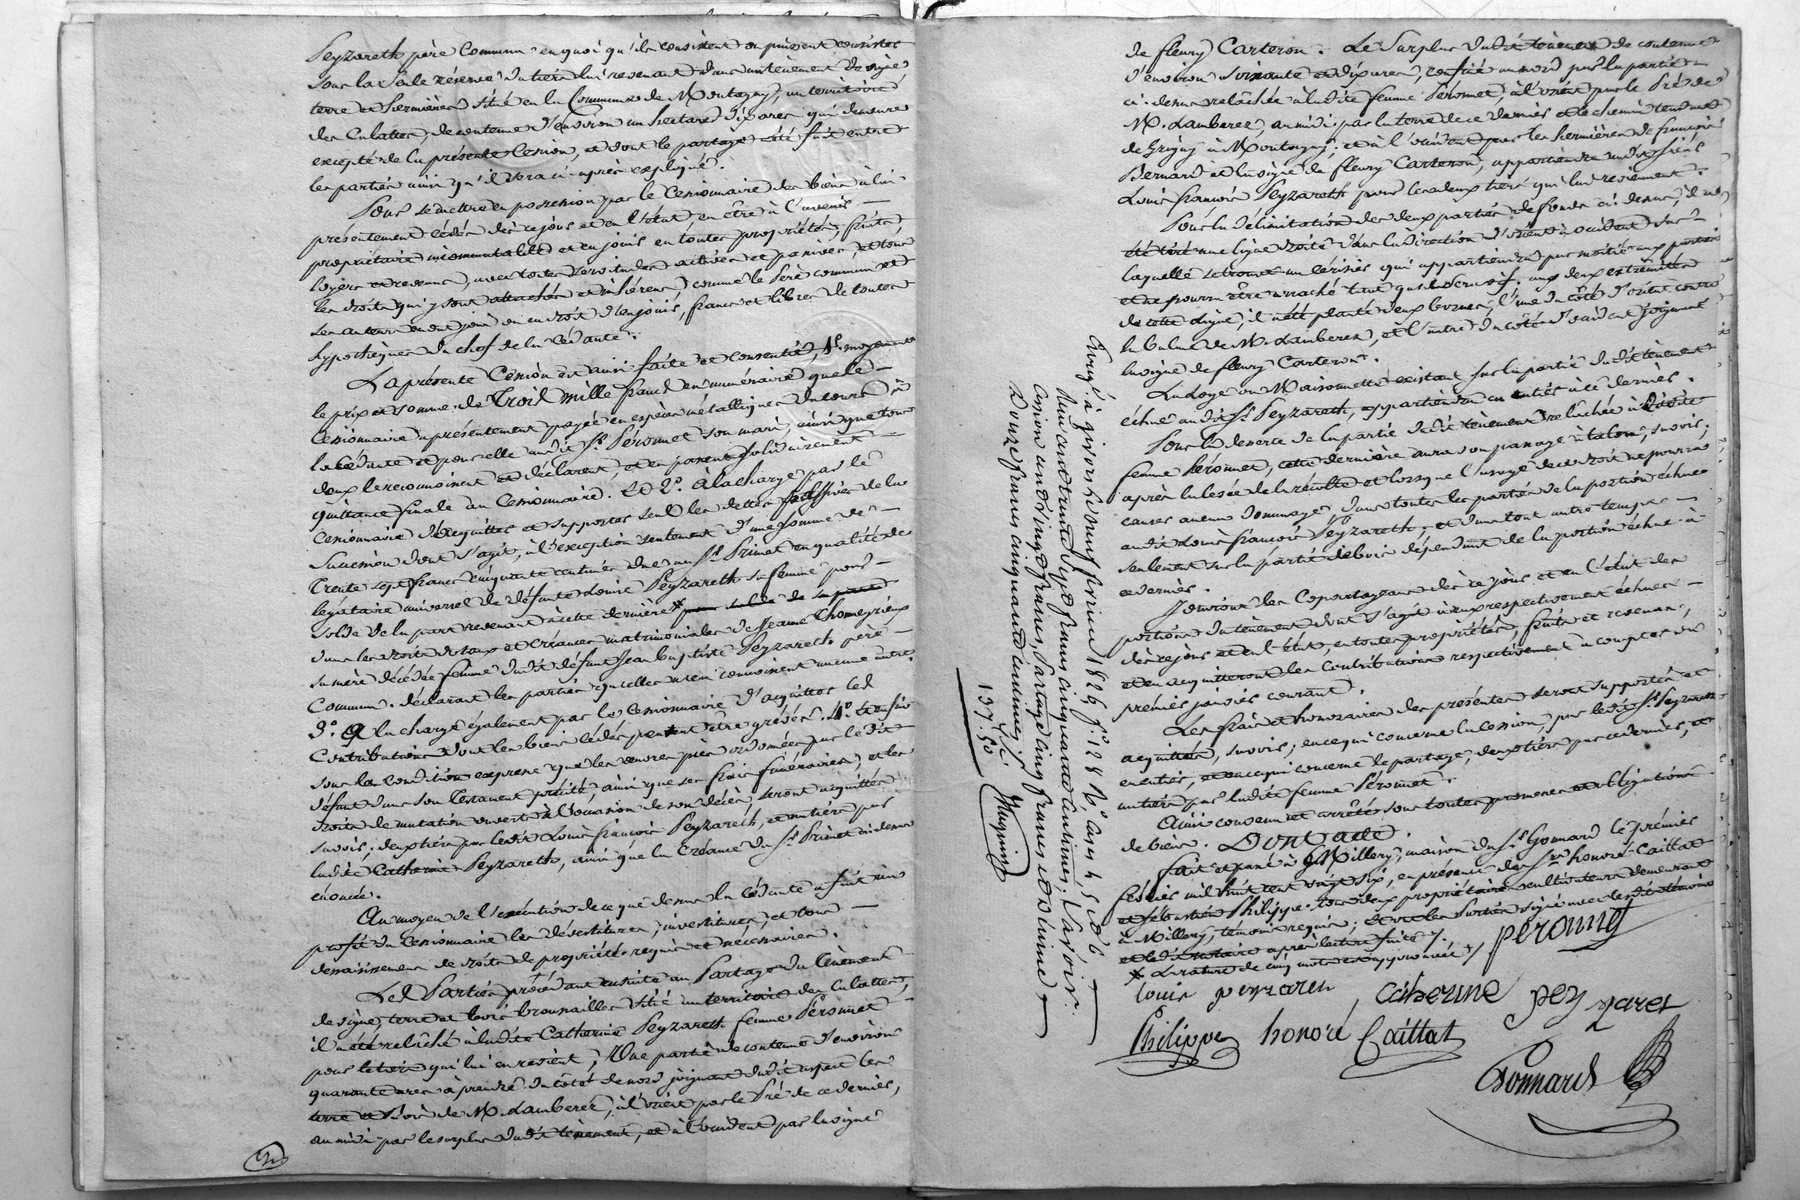 Peyzareth père commun en quoi qu'ils consistent ou puissent consister
sous la seule réserve du tiers lui revenant dans un tènement de vigne
terre et hermières situé en la Commune de Montagny, au territoire
des Culattes, de contenue d'environ un hectare dix ares qui demeure
excepté de la présente Cession, et dont le partage été fait entre
les parties ainsi qu'il sera ci-après expliqué.
Pour se mettre en possession par le Cessionnaire des biens à lui
présentement cédés dès ce jour et en l'état en être à l'avenir
propriétaire incommutable et en jouir en toutes propriétés, fruits,
loyers et revenus, avec toutes servitudes actives et passives, et tous
les droits qui y sont attachés et inhérens, comme le Père commun et
ses auteurs en ont joui ou eu droit d'en jouir, francs et libres de toutes
hypothèques du chef de la Cédante.
La présente Cession est ainsi faite et consentie, 1º moyennant
le prix et somme de Trois mille francs en numéraire que le
Cessionnaire a présentement payée en espèces métalliques du cours à
la Cédante et pour elle audit Sr. Péronnet son mari, ainsi que tous
deux le reconnoissent et déclarent, et en passent solidairement
quittance finale au Cessionnaire. Et 2º. à la charge par le
Cessionnaire d'acquitter et supporter seul les dettes passives de la
succession dont s'agit, à l'exception seulement d'une somme de
Trente sept francs cinquante centimes due au Sr. Primet en qualité de
légataire universel de défunte Louise Peyzareth sa femme pour
solde de la part revenant à cette dernière
dans les droits dotaux et créances matrimoniales de Jeanne Thomeyrieux
sa mère décédée femme dudit défunt Jean Baptiste Peyzareth père
Commun. déclarant les parties qu'elles n'en connoissent aucune autre
3º. A la charge également par le Cessionnaire d'acquitter les
Contributions dont les biens cédés peuvent être grévés. 4º. Et enfin
sous la condition expresse que les œuvres pies ordonnées par ledit
défunt dans son Testament précité, ainsi que ses frais funéraires, et les
droits de mutation ouverts à l'occasion de son décès, seront acquittés
savoir, deux tiers par ledit Louis françois Peyzareth, et un tiers par
ladite Catherine Peyzareth, ainsi que la Créance du Sr. Primet ci dessus
énoncée.
Au moyen de l'exécution de ce que dessus la Cédante a fait au
profit du Cessionnaire les dévestitures, investitures, et tous
dessaisissemens de droits de propriété requis et nécessaires.
Les Parties procédant ensuite au Partage du tènement
de vigne, terre et bois broussailles situé au territoire des Culattes,
il a été relâché à ladite Catherine Peyzareth femme Péronnet
pour le tiers qui lui en revient, Une partie de contenue d'environ
quarante ares à prendre du côté de nord joignant dudit aspect les
terre et Bois de M. Lamberez, à l'orient par le Pré de ce dernier,
au midi par le surplus dudit tènement, et à l'occident par la vigne
de fleury Carteron. Le Surplus dudit tènement de contenue
d'environ soixante et dix ares, confiné au nord par la partie
ci-dessus relâchée à ladite femme Péronnet, à l'orient par le Pré de
M. Lamberez, au midi par la terre de ce dernier et le chemin tendant
de Grigny à Montagny, et à l'occident par les hermières de françois
Bernard et la vigne de fleury Carteron, appartiendra audit Sieur
Louis françois Peyzareth pour les deux tiers qui lui reviennent.
Pour la délimitation des deux parties de fonds ci-dessus, il a
été tiré une ligne droite dans la direction d'orient à occident sur
laquelle se trouve un cérisier qui appartiendra par moitié aux parties
et ne pourra être arraché tant qu'il sera vif. aux deux extrêmités
de cette ligne, il a été planté deux bornes, l'une du côté d'orient contre
la balme de M. Lamberez, et l'autre du côté d'occident joignant
la vigne de fleury Carteron.
La Loge ou Maisonnette existant sur la partie dudit tènement
échue audit Sr. Peyzareth, appartiendra en entier à ce dernier.
Pour la desserte de la partie dudit tènement relâchée à ladite
femme Péronnet, cette dernière aura son passage à talon, savoir,
après la levée de la récolte et lorsque l'usage de ce droit ne pourra
causer aucun dommage, dans toutes les parties de la portion échue
audit Louis françois Peyzareth, et dans tout autre temps
seulement sur la partie de bois dépendant de la portion échue à
ce dernier.
Jouiront les Copartageans dès ce jour et en l'état des
portions du tènement dont s'agit à eux respectivement échues
dès ce jour et en l'état, en toutes propriétés, fruits et revenus,
et en acquitteront les contributions respectivement à compter du
premier janvier courant.
Les frais et honoraires des présentes seront supportés et
acquittés, savoir, en ce qui concerne la cession, par ledit Sr. Peyzareth
en entier, et en ce qui concerne le partage, deux tiers par ce dernier, et
un tiers par ladite femme Péronnet.
Ainsi convenu et arrêté sous toutes promesses et obligations
de biens. Dont acte.
fait et passé à Millery, maison du Sr. Gonnard le premier
février mil huit cent vingt six, en présence des Srs. honoré Caillat
et Sébastien Philippe tous deux propriétaires cultivateurs demeurant
à Millery, témoins requis, et ont les Parties signé avec lesdits témoins
et le Notaire après lecture faite.
× La rature de cinq mots est approuvée
péronnet
louis peyzaret catherine peyzaret
Philippe honoré Caillat
Gonnard
Enregé. à givors le neuf février 1826 fº. 128 Rº. cases 4, 5 et 6
Reçu cent trente sept francs cinquante centimes, Savoir
Cession cent vingt francs, Partage cinq francs et dixième
Douze francs cinquante centimes.
137.50